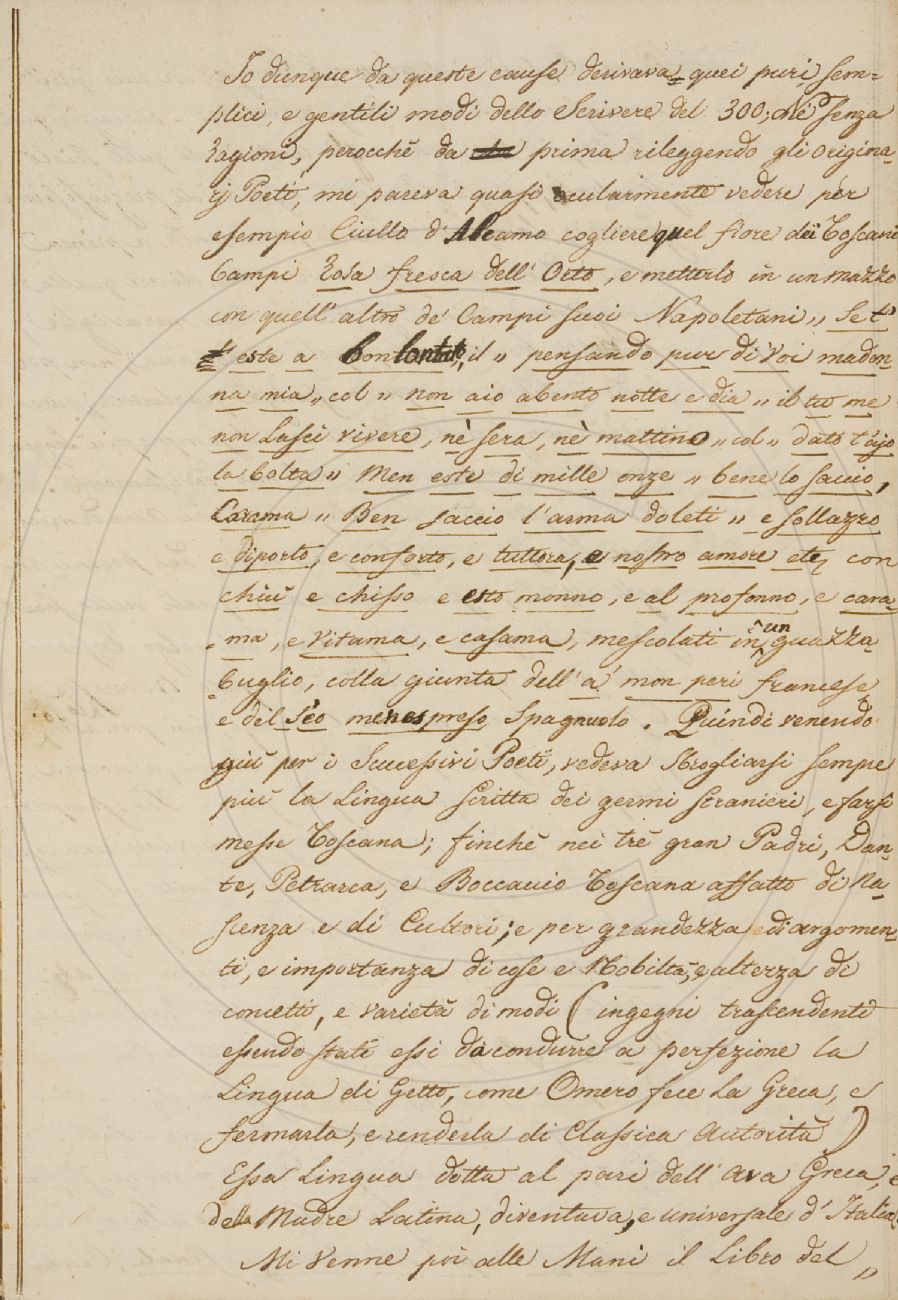 Io dunque da queste cause derivava quei puri, sem=
plici, e gentili modi dello Scrivere del 300; Nè senza
Ragioni, perocchè da prima rileggendo gli origina=
rj Poeti, mi pareva quasi ocularmente vedere per
esempio Ciullo d'Alcamo cogliere quel fiore dei Toscani
Campi Rosa fresca dell'Orto, e metterlo in un mazzo
con quell'altro de' Campi suoi Napoletani „ Se t'
t' este a bontontato, il „ pensando pur di Voi madon=
na mia „ col „ non aio abento notte e dia „ il tu me
non Lasci vivere, nè sera, nè mattino „ col „ dato t'ajo
la bolta „ Men este di mille onze „ bene lo saccio,
Carama „ Ben saccio l'arma doleti „ e sollazzo
e diporto, e conforto, e tuttora, e nostro amore etc, con
chiù e chisso e esto monno, e al profonno, e cara=
=ma, e Vitama, e casama, mescolati in un guazza=
=buglio, colla giunta dell'a mon peri francese
e del séo menespreso Spagnuolo. Quindi venendo
giù per i Successivi Poeti, vedeva Sbrogliarsi sempre
più la Lingua Scritta dei germi stranieri, e farsi
messe Toscana; finchè nei trè gran Padri, Dan=
te, Petrarca, e Boccaccio Toscana affatto di Na=
scenza e di Cultori; e per grandezza di argomen=
ti, e importanza di cose e Nobiltà, e altezza di
concetti, e varietà di modi ( ingegni trascendenti
essendo stati essi da condurre a perfezione la
Lingua di Getto, come Omero fece La Greca, e
fermarla, e renderla di Classica Autorità )
Essa Lingua dotta al pari dell'Ava Greca, e
della Madre Latina, diventava, e universale d'Italia.
Mi Venne poi alle Mani il Libro del „